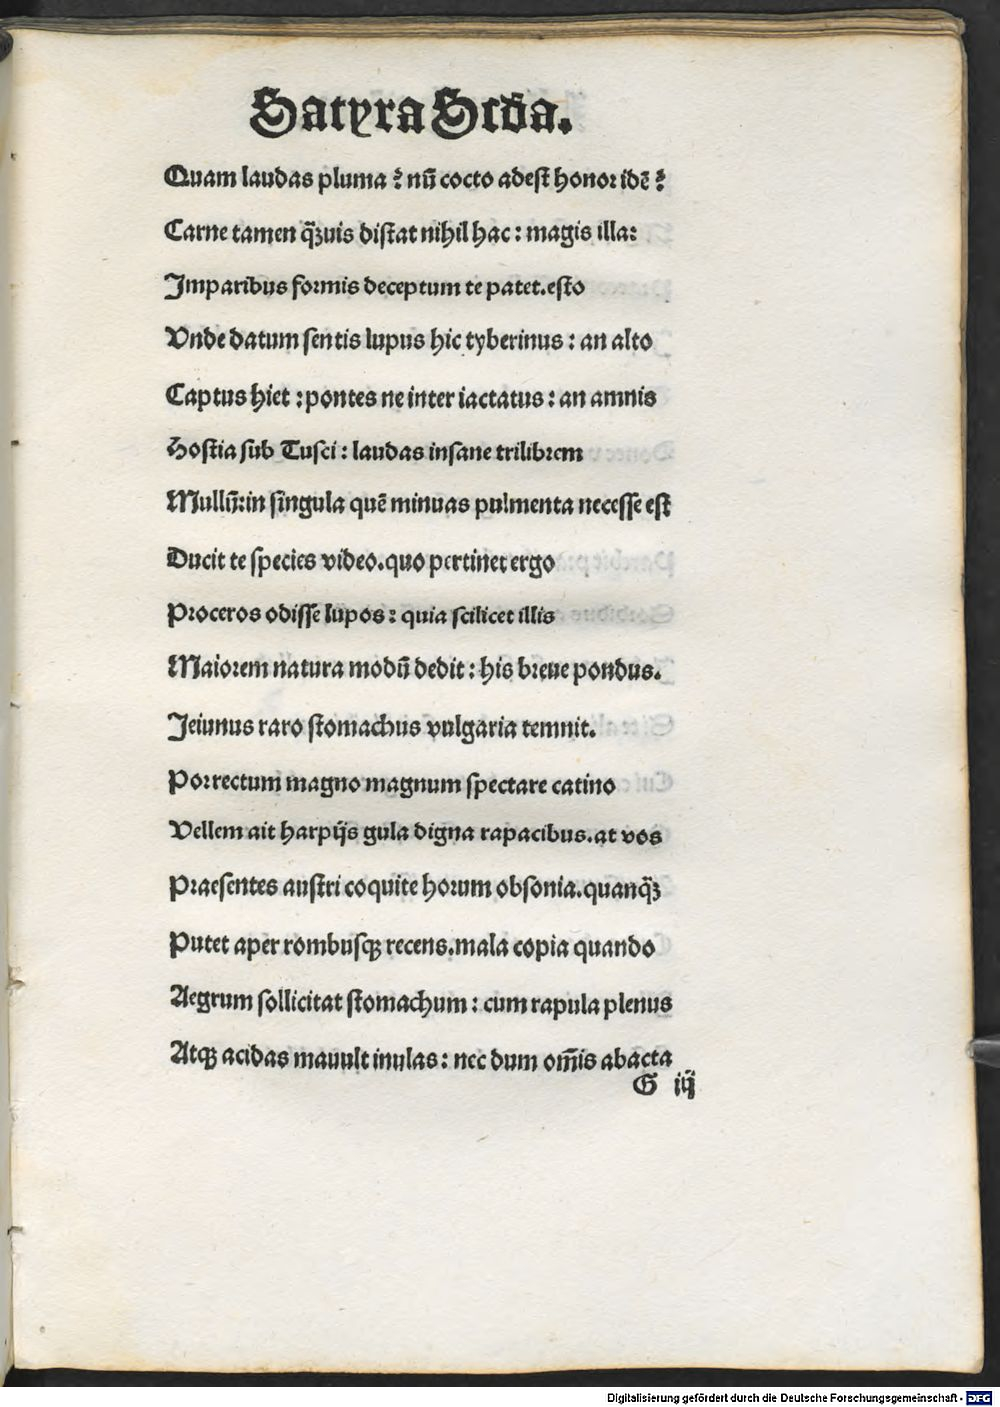 Satyra Scd̄a.
Quam laudas pluma ? nū cocto adest honor idē ?
Carne tamen q̄ȝuis distat nihil hac : magis illa:
Imparibus formis deceptum te patet.esto
Vnde datum sentis lupus hic tyberinus : an alto
Captus hiet : pontes ne inter iactatus : an amnis
Hostia sub Tusci : laudas insane trilibrem
Mullū:in singula quē minuas pulmenta necesse est
Ducit te species video.quo pertinet ergo
Proceros odisse lupos : quia scilicet illis
Maiorem natura modū dedit : his breue pondus.
Ieiunus raro stomachus vulgaria temnit.
Porrectum magno magnum spectare catino
Vellem ait harpijs gula digna rapacibus.at vos
Praesentes austri coquite horum obsonia.quanq̄ȝ
Putet aper rombusqȝ recens.mala copia quando
Aegrum sollicitat stomachum : cum rapula plenus
Atqȝ acidas mauult inulas : nec dum om̄is abacta
G iij
Digitalisierung gefördert durch die Deutsche Forschungsgemeinschaft - DFG